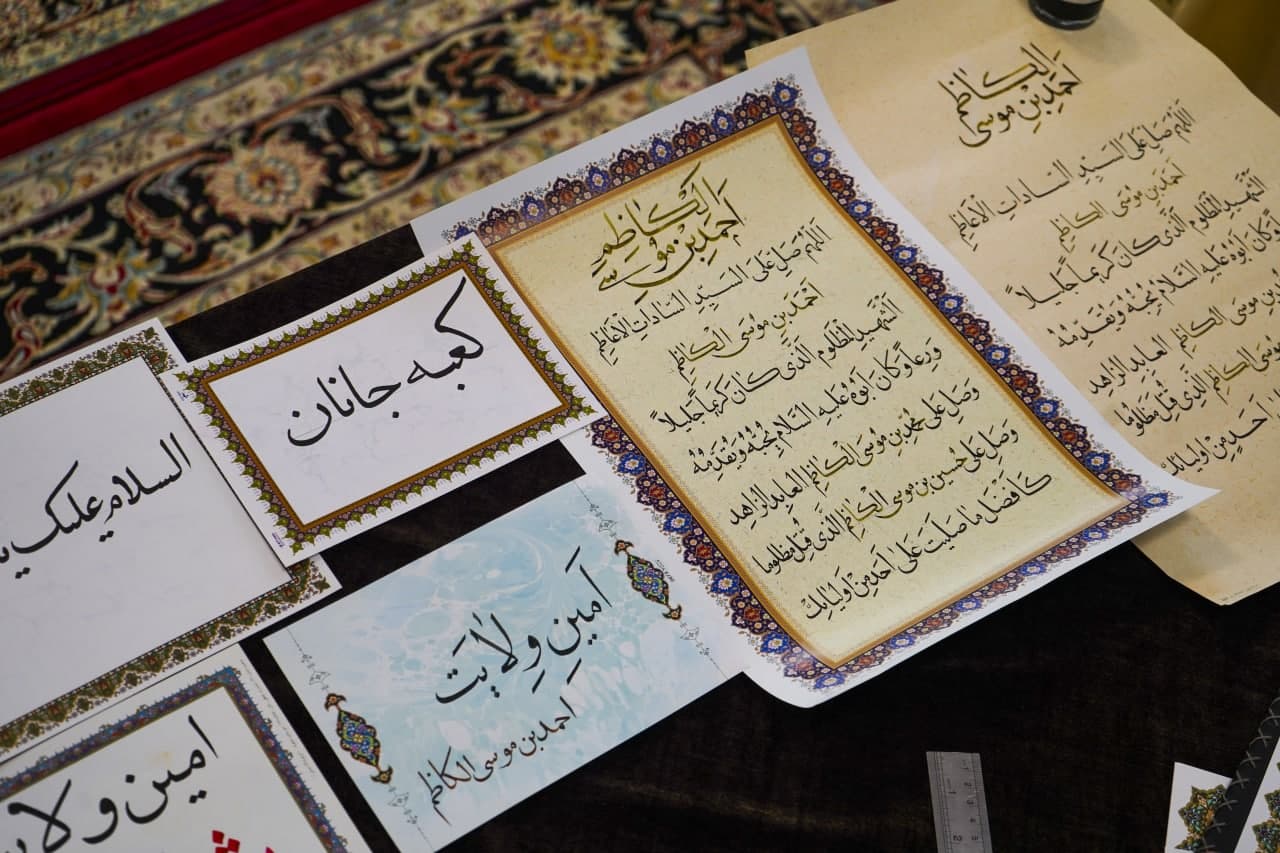 احمد بن موسی الکاظم
اللهم صل علی السید السادات الاعاظم
احمد بن موسی الکاظم
الشهید المظلوم الذی کان کریماً جلیلاً
ورعاً و کان ابوه علیه السلام یحبه و یقدمه
وصل علی محمد بن موسی الکاظم العابد الزاهد
وصل علی حسین بن موسی الکاظم الذی قتل مظلوما
کافضل ما صلیت علی احد من اولیائک
احمد بن موسی الکاظم
اللهم صل علی السید السادات الاعاظم
احمد بن موسی الکاظم
الشهید المظلوم الذی کان کریماً جلیلاً
کان ابوه علیه السلام یحبه و یقدمه
بن موسی الکاظم العابد الزاهد
موسی الکاظم الذی قتل مظلوما
احد من اولیائک
کعبه جانان
السلام علیک
آمین ولایت
احمد بن موسی الکاظم
امین ولا